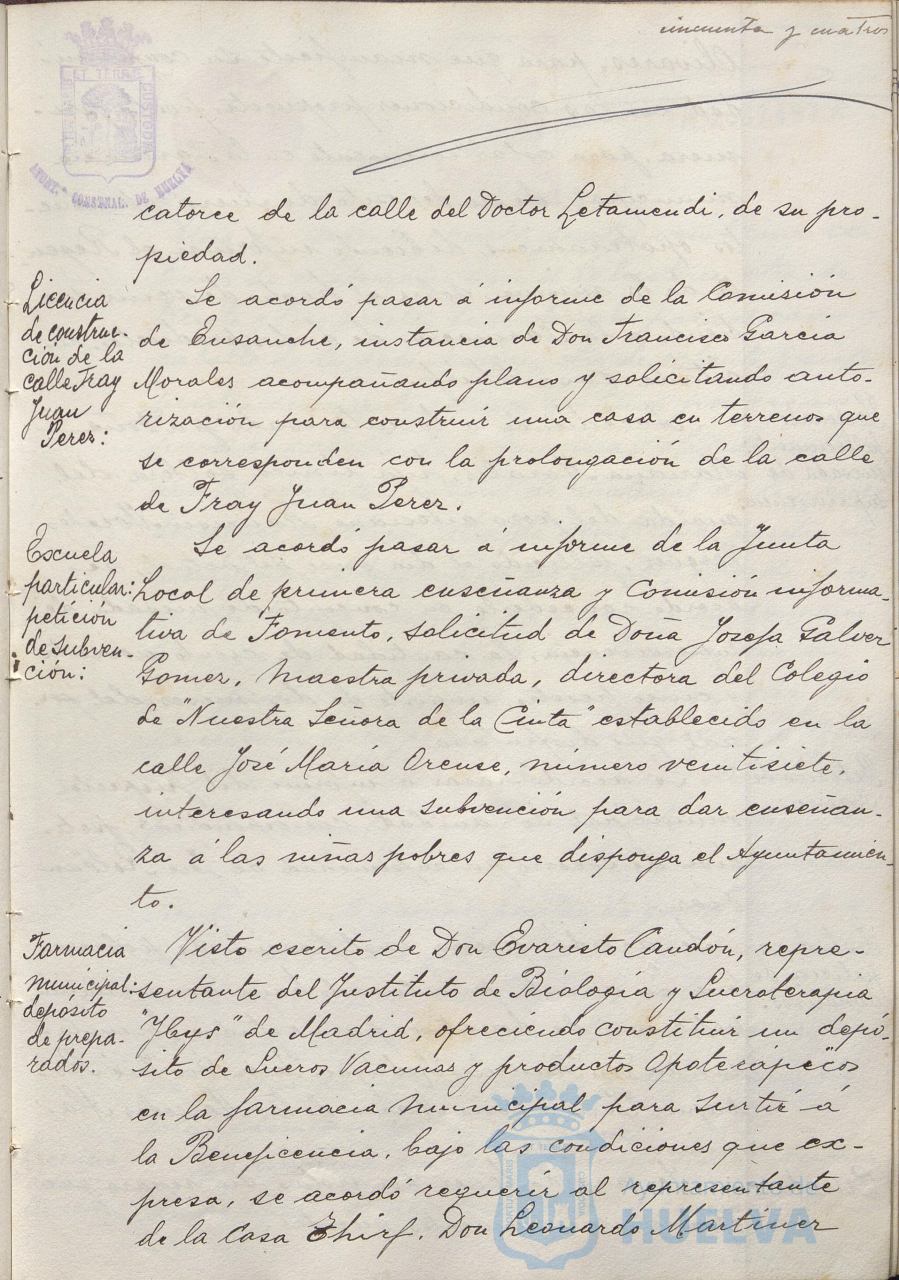 cincuenta y cuatro
PORTUS MARIS ET TERRÆ CUSTODIA
AYUNT.º CONSTNAL. DE HUELVA
catorce de la calle del Doctor Letamendi, de su pro-
piedad.
Licencia
de construc-
ción de la
calle Fray
Juan
Perez:
Se acordó pasar á informe de la Comisión
de Ensanche, instancia de Don Francisco Garcia
Morales acompañando plano y solicitando auto-
rización para construir una casa en terrenos que
se corresponden con la prolongación de la calle
de Fray Juan Perez.
Escuela
particular:
petición
de subven-
ción:
Se acordó pasar á informe de la Junta
Local de primera enseñanza y Comisión informa-
tiva de Fomento, solicitud de Doña Josefa Galvez
Gomez, Maestra privada, directora del Colegio
de "Nuestra Señora de la Cinta" establecido en la
calle José María Orense, número veintisiete,
interesando una subvención para dar enseñan-
za á las niñas pobres que disponga el Ayuntamien-
to.
Farmacia
municipal:
depósito
de prepa-
rados.
Visto escrito de Don Evaristo Caudón, repre-
sentante del Instituto de Biología y Sueroterapia
"Ibys" de Madrid, ofreciendo constituir un depó-
sito de Sueros Vacunas y productos Opoterápicos
en la farmacia Municipal para surtir á
la Beneficencia, bajo las condiciones que ex-
presa, se acordó requerir al representante
de la Casa Thirf, Don Leonardo Martinez
Ayuntamiento de
HUELVA